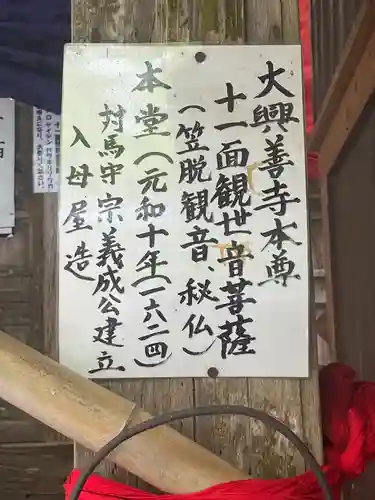 大興善寺本尊
十一面観世音菩薩
(笠脱観音、秘仏)
本堂(元和十年(一六二四)
対馬守宗義成公建立
入母屋造